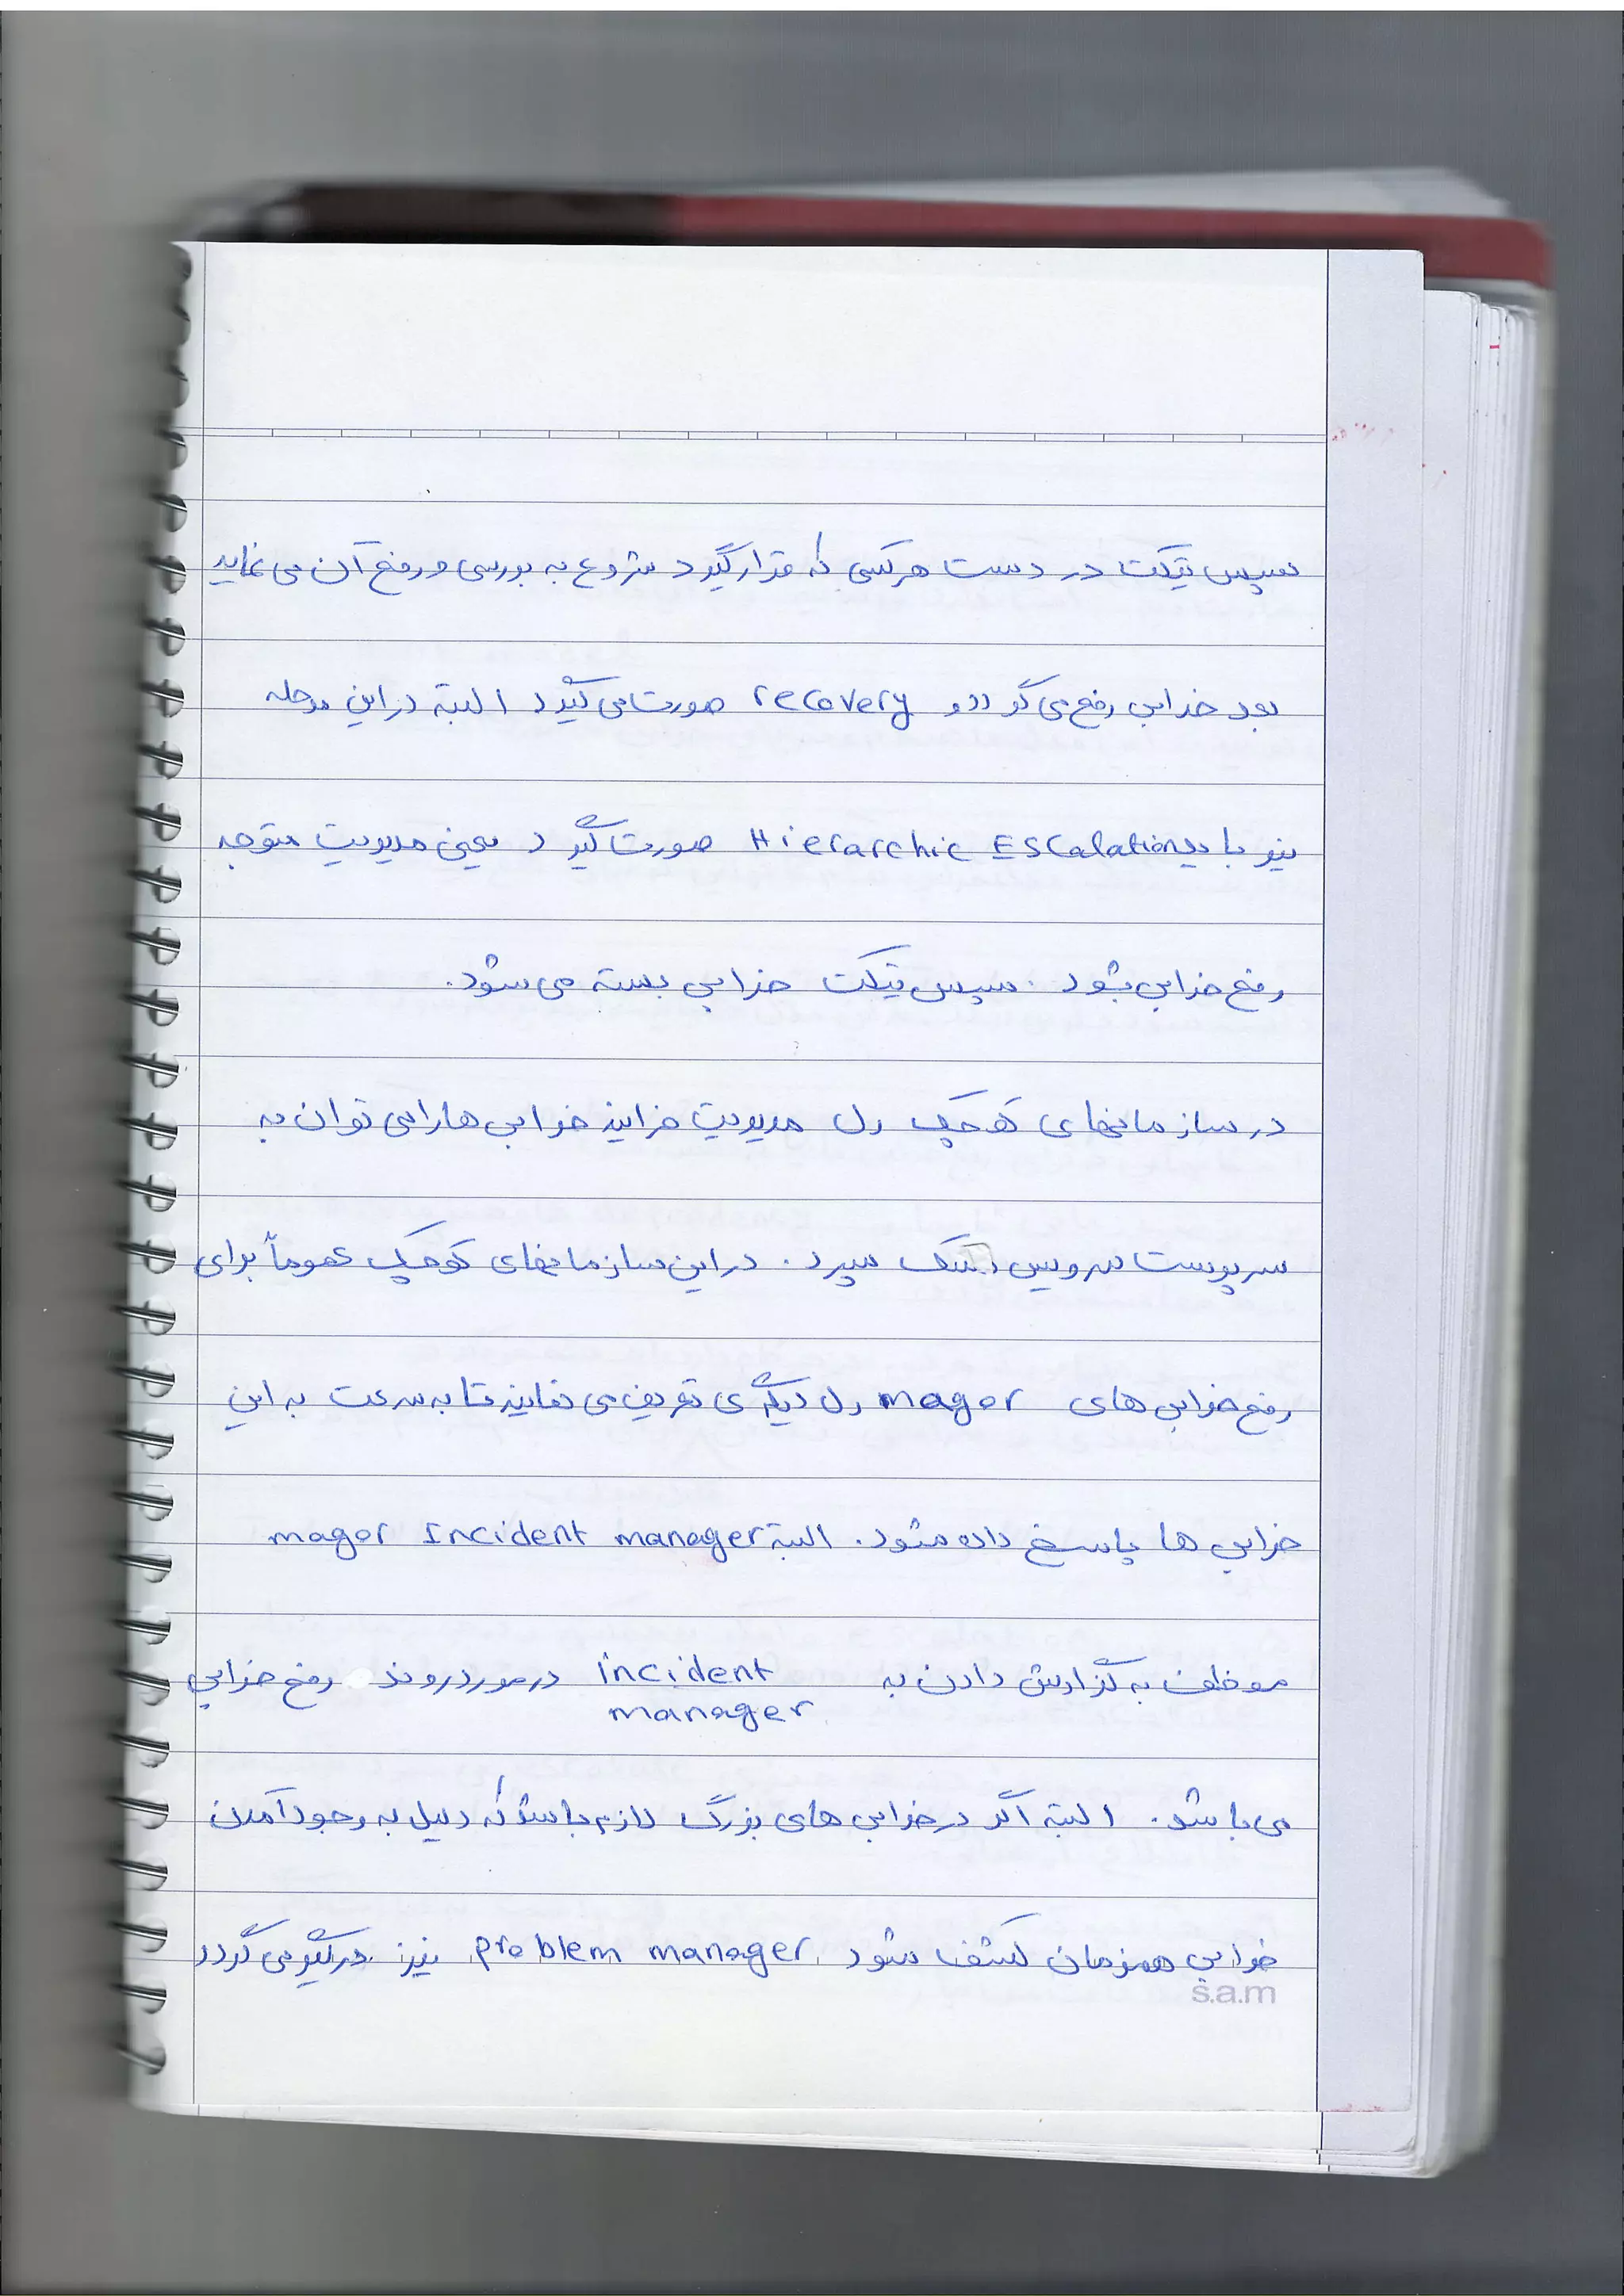 سپس تیکت در دست هرکسی که قرار گیرد شروع به بررسی و رفع آن می نماید
بعد خرابی رفع می گردد و recovery صورت می گیرد البته در این مرحله
نیز باید Hierarchic Escalation صورت گیرد یعنی مدیریت متوجه
رفع خرابی بشود. سپس تیکت خرابی بسته می شود.
در سازمانهای کوچک رل مدیریت فرایند خرابی ها را می توان به
سرپرست سرویس دسک سپرد. در این سازمانهای کوچک عموماً برای
رفع خرابی های magor رل دیگری تعریف می نمایند تا به سرعت به این
خرابی ها پاسخ داده شود. البته magor Incident manager
موظف به گزارش دادن به incident manager در مورد روند رفع خرابی
می باشد. البته اگر در خرابی های بزرگ لازم باشد که دلیل به وجود آمدن
خرابی همزمان کشف شود problem manager نیز درگیر می گردد
s.a.m